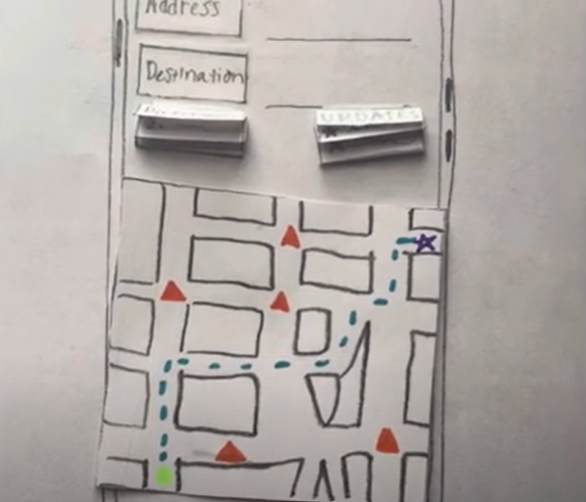 Address
Destination
UPDATES